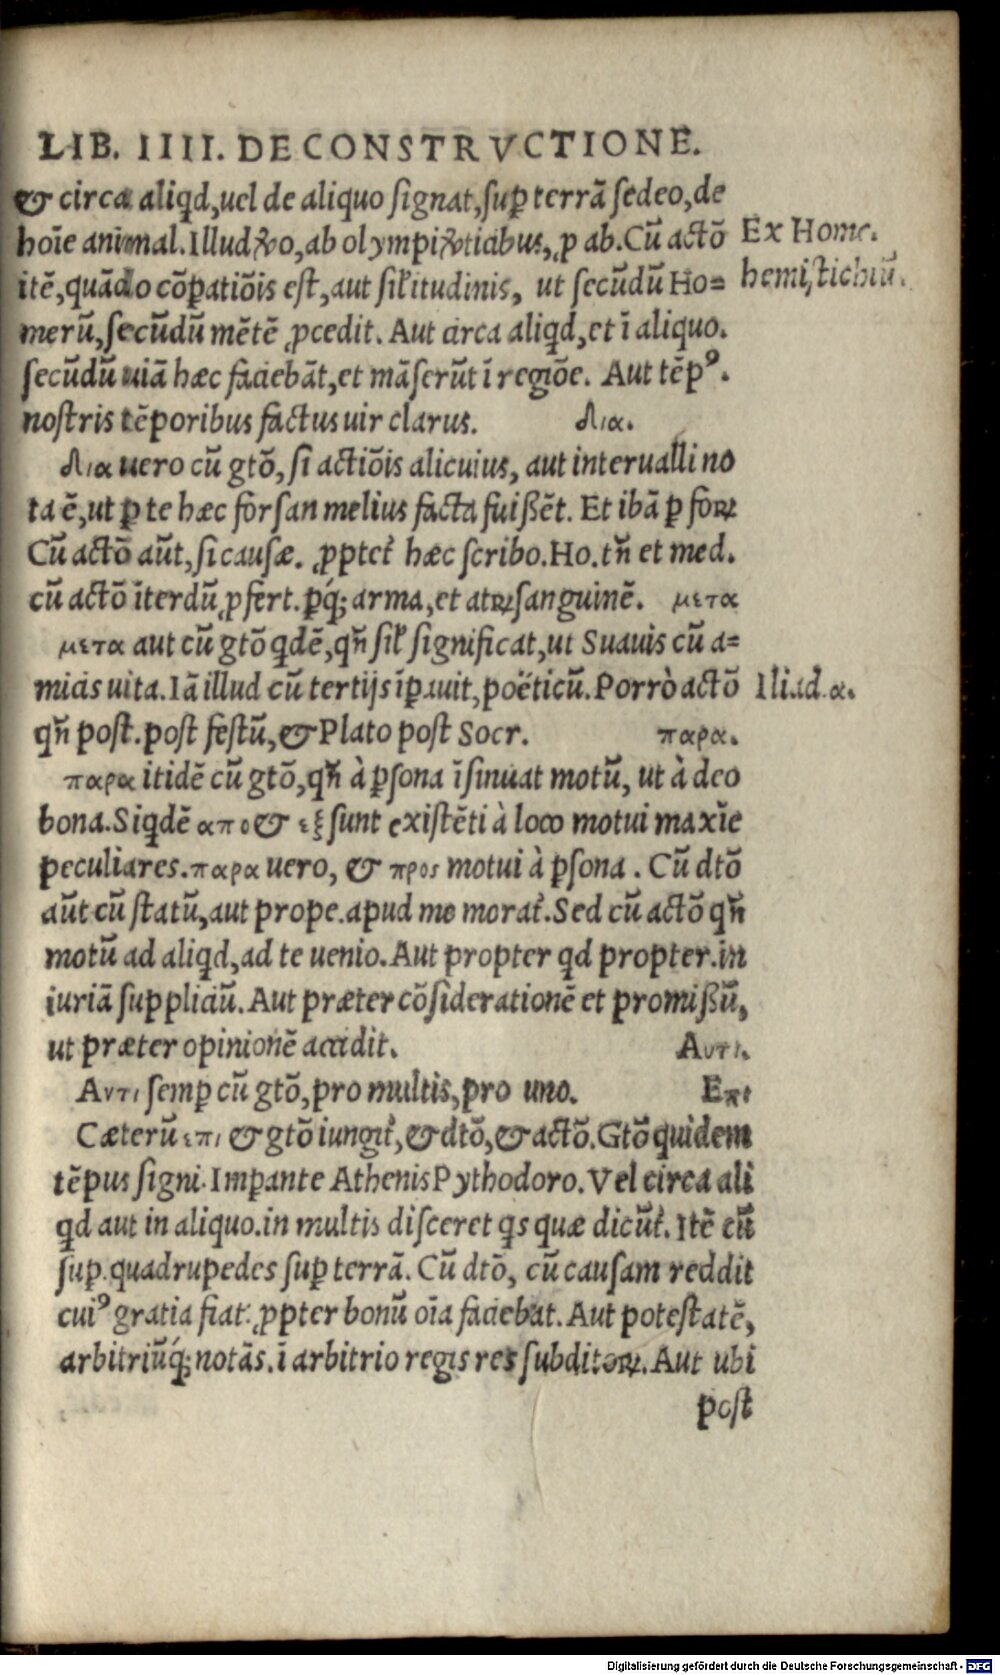 LIB. IIII. DE CONSTRVCTIONE.
& circa aliqd, uel de aliquo signat, sup terrã sedeo, de
hoĩe animal. Illud ꝟo, ab olympiꝟticibus, ꝓ ab. Cũ actõ
Ex Home.
itẽ, quãdo cõꝑatiõis est, aut sil̃itudinis, ut secũdũ Ho=
hemistichiũ.
merũ, secũdũ mẽtẽ ꝓcedit. Aut circa aliqd, et ĩ aliquo.
secũdũ uiã hæc faciebãt, et mãserũt ĩ regiõe. Aut tẽpꝰ.
nostris tẽporibus factus uir clarus. δια.
δια uero cũ gtõ, si actiõis alicuius, aut interualli no
ta ẽ, ut ꝑ te hæc forsan melius facta fuißẽt. Et ibã ꝑ foꝝ
Cũ actõ aũt, si causæ. ꝓptet̃ hæc scribo. Ho. tñ et med.
cũ actõ ĩterdũ ꝓfert. ꝑq́; arma, et atꝝ sanguinẽ. μετα
μετα aut cũ gtõ qdẽ, qñ sil̃ significat, ut Suauis cũ a=
micis uita. Iã illud cũ tertijs ĩꝑauit, poëticũ. Porrò actõ
Iliad. α.
qñ post. post festũ, & Plato post Socr. παρα.
παρα itidẽ cũ gtõ, qñ à ꝑsona ĩsinuat motũ, ut à deo
bona. Siqdẽ απο & εξ sunt existẽti à loco motui maxĩe
peculiares. παρα uero, & προς motui à ꝑsona. Cũ dtõ
aũt cũ statũ, aut prope. apud me morat̃. Sed cũ actõ qñ
motũ ad aliqd, ad te uenio. Aut propter qd propter. in
iuriã suppliciũ. Aut præter cõsiderationẽ et promißũ,
ut præter opinionẽ accidit. Αντι.
Αντι semꝑ cũ gtõ, pro multis, pro uno. Επι
Cæterũ επι & gtõ iungit̃, & dtõ, & actõ. Gtõ quidem
tẽpus signi. Imꝑante Athenis Pythodoro. Vel circa ali
qd aut in aliquo. in multis disceret qs quæ dicũt̃. Itẽ cũ
suꝑ. quadrupedes suꝑ terrã. Cũ dtõ, cũ causam reddit
cuiꝰ gratia fiat: ꝓpter bonũ oĩa faciebat. Aut potestatẽ,
arbitriũq́; notãs. ĩ arbitrio regis res subditoꝝ. Aut ubi
post
Digitalisierung gefördert durch die Deutsche Forschungsgemeinschaft - DFG